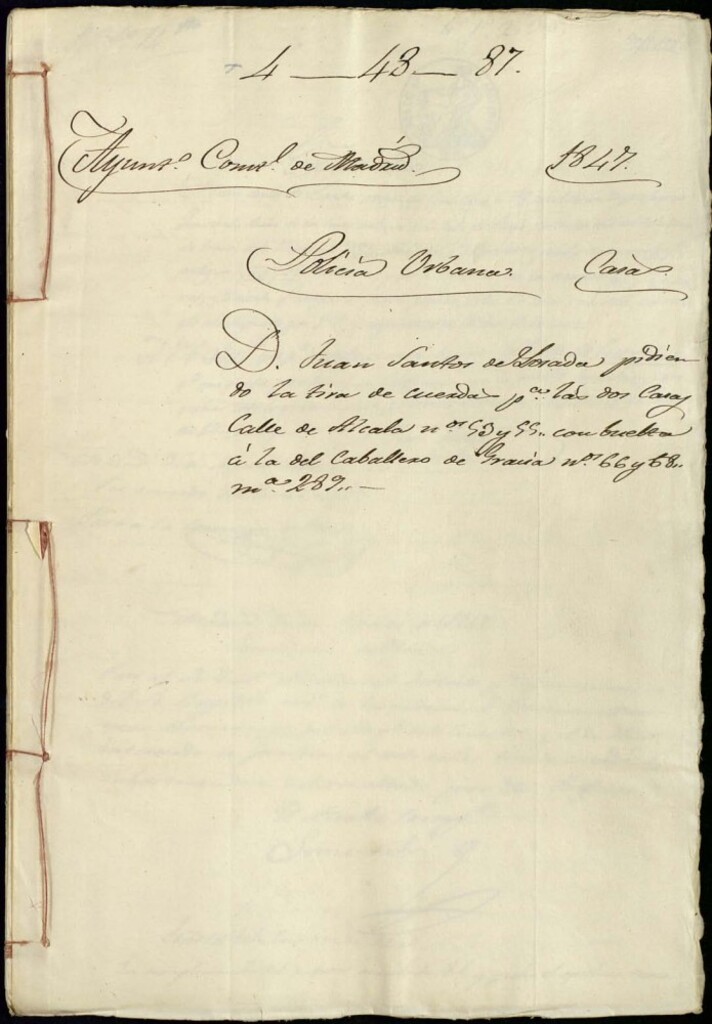 4 — 43 — 87.
Ayunt.º Const.l de Madrid. 1847.
Policia Urbana. Casas
D. Juan Santos de Posada pidien
do la tira de cuerdas p.ª las dos Casas
Calle de Alcala n.os 53 y 55.. con buelta
á la del Caballero de Gracia n.os 66 y 68..
m.ª 289.. —